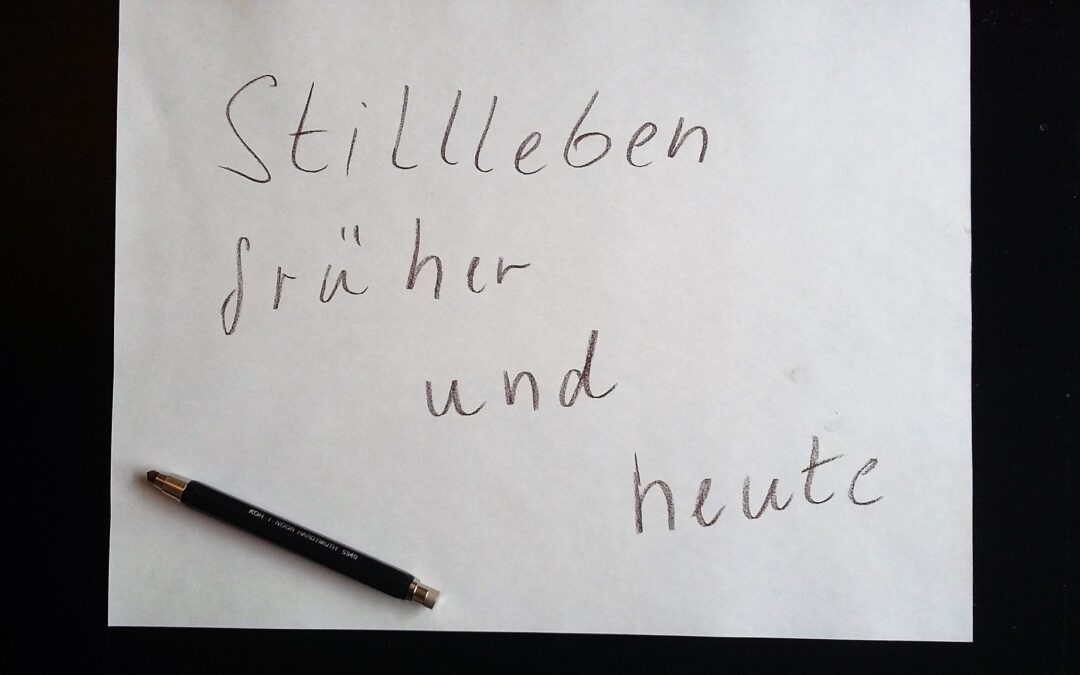 Stillleben
früher
und
heute
KOH-I-NOOR HARDTMUTH 5340